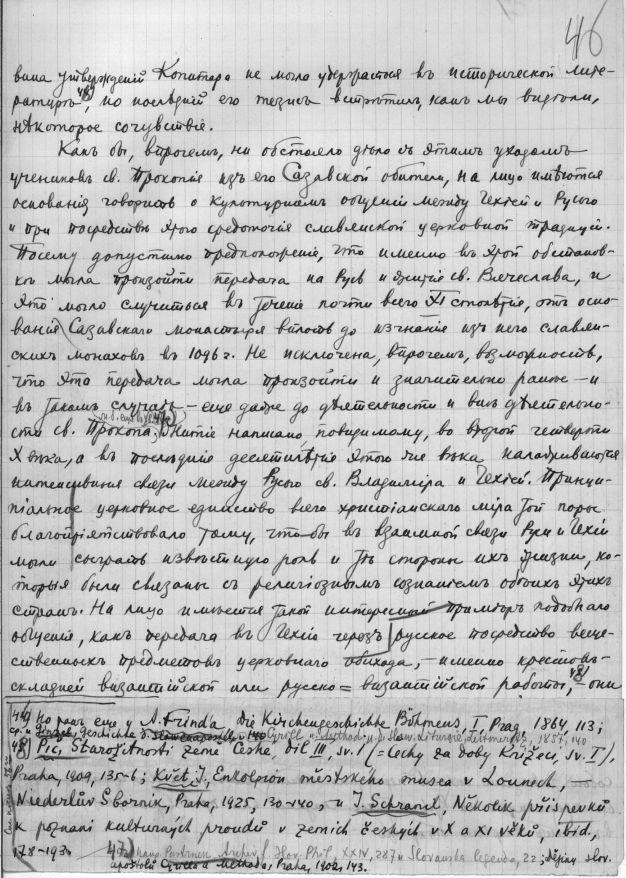 46
вина утвержденій Копитара не могла удержаться въ исторической лите-
ратурѣ, но послѣдній его тезисъ встрѣтилъ, какъ мы видѣли,
нѣкоторое сочувствіе.
Какъ бы, впрочемъ, ни обстояло дѣло съ этимъ уходомъ
учениковъ св. Прокопія изъ его Сазавской обители, на лицо имѣются
основанія говорить о культурномъ общеніи между Чехіей и Русью
и при посредствѣ этого средоточія славянской церковной традиціи.
Посему допустимо предположеніе, что именно въ этой обстанов-
кѣ могла произойти передача на Русь и житіе св. Вячеслава, и
это могло случиться въ теченіе почти всего XI столѣтія, отъ осно-
ванія Сазавскаго монастыря вплоть до изгнанія изъ него славян-
скихъ монаховъ въ 1096 г. Не исключена, впрочемъ, возможность,
что эта передача могла произойти и значительно ранѣе — и
въ такомъ случаѣ — еще даже до дѣятельности и внѣ дѣятельно-
сти св. Прокопа; Житіе написано, повидимому, во второй четверти
X вѣка, а въ послѣднія десятилѣтія этого же вѣка налаживаются
интенсивныя связи между Русью св. Владиміра и Чехіей. Принци-
піальное церковное единство всего христіанскаго міра той поры
благопріятствовало тому, чтобы въ взаимной связи Руси и Чехіи
могли сыграть извѣстную роль и тѣ стороны ихъ жизни, ко-
торыя были связаны съ религіознымъ сознаніемъ обоихъ этихъ
странъ. На лицо имѣется такой интересный примѣръ подобнаго
общенія, какъ передача въ Чехію черезъ русское посредство веще-
ственныхъ предметовъ церковнаго обихода, — именно крестовъ-
складней византійской или русско=византійской работы, 48) — они
Но ранѣе еще у A. Frinda, die Kirchengeschichte Böhmens, I, Prag, 1864, 113;
Cyrill u. Method u. d. slaw. Liturgie, Leitmeritz, 1857, 140
48) Píč, Starožitnosti země České, díl III, sv. 1 (= Čechy za doby Knížecí, sv. I),
Praha, 1909, 135-6; Květ, J, Enkolpion městského musea v Lounech, —
Niederlův Sborník, Praha, 1925, 130-140, и J. Schránil, Několik příspěvků
k poznání kulturných proudů v zemích českých v X a XI věku, ibid,
178-193.
47) Pastrnek, Archiv f. Slav. Phil., XXIV, 287 и Slovanská legenda, 22; dějiny slov.
apoštolů Cyrilla a Methoda, Praha, 1902, 143.